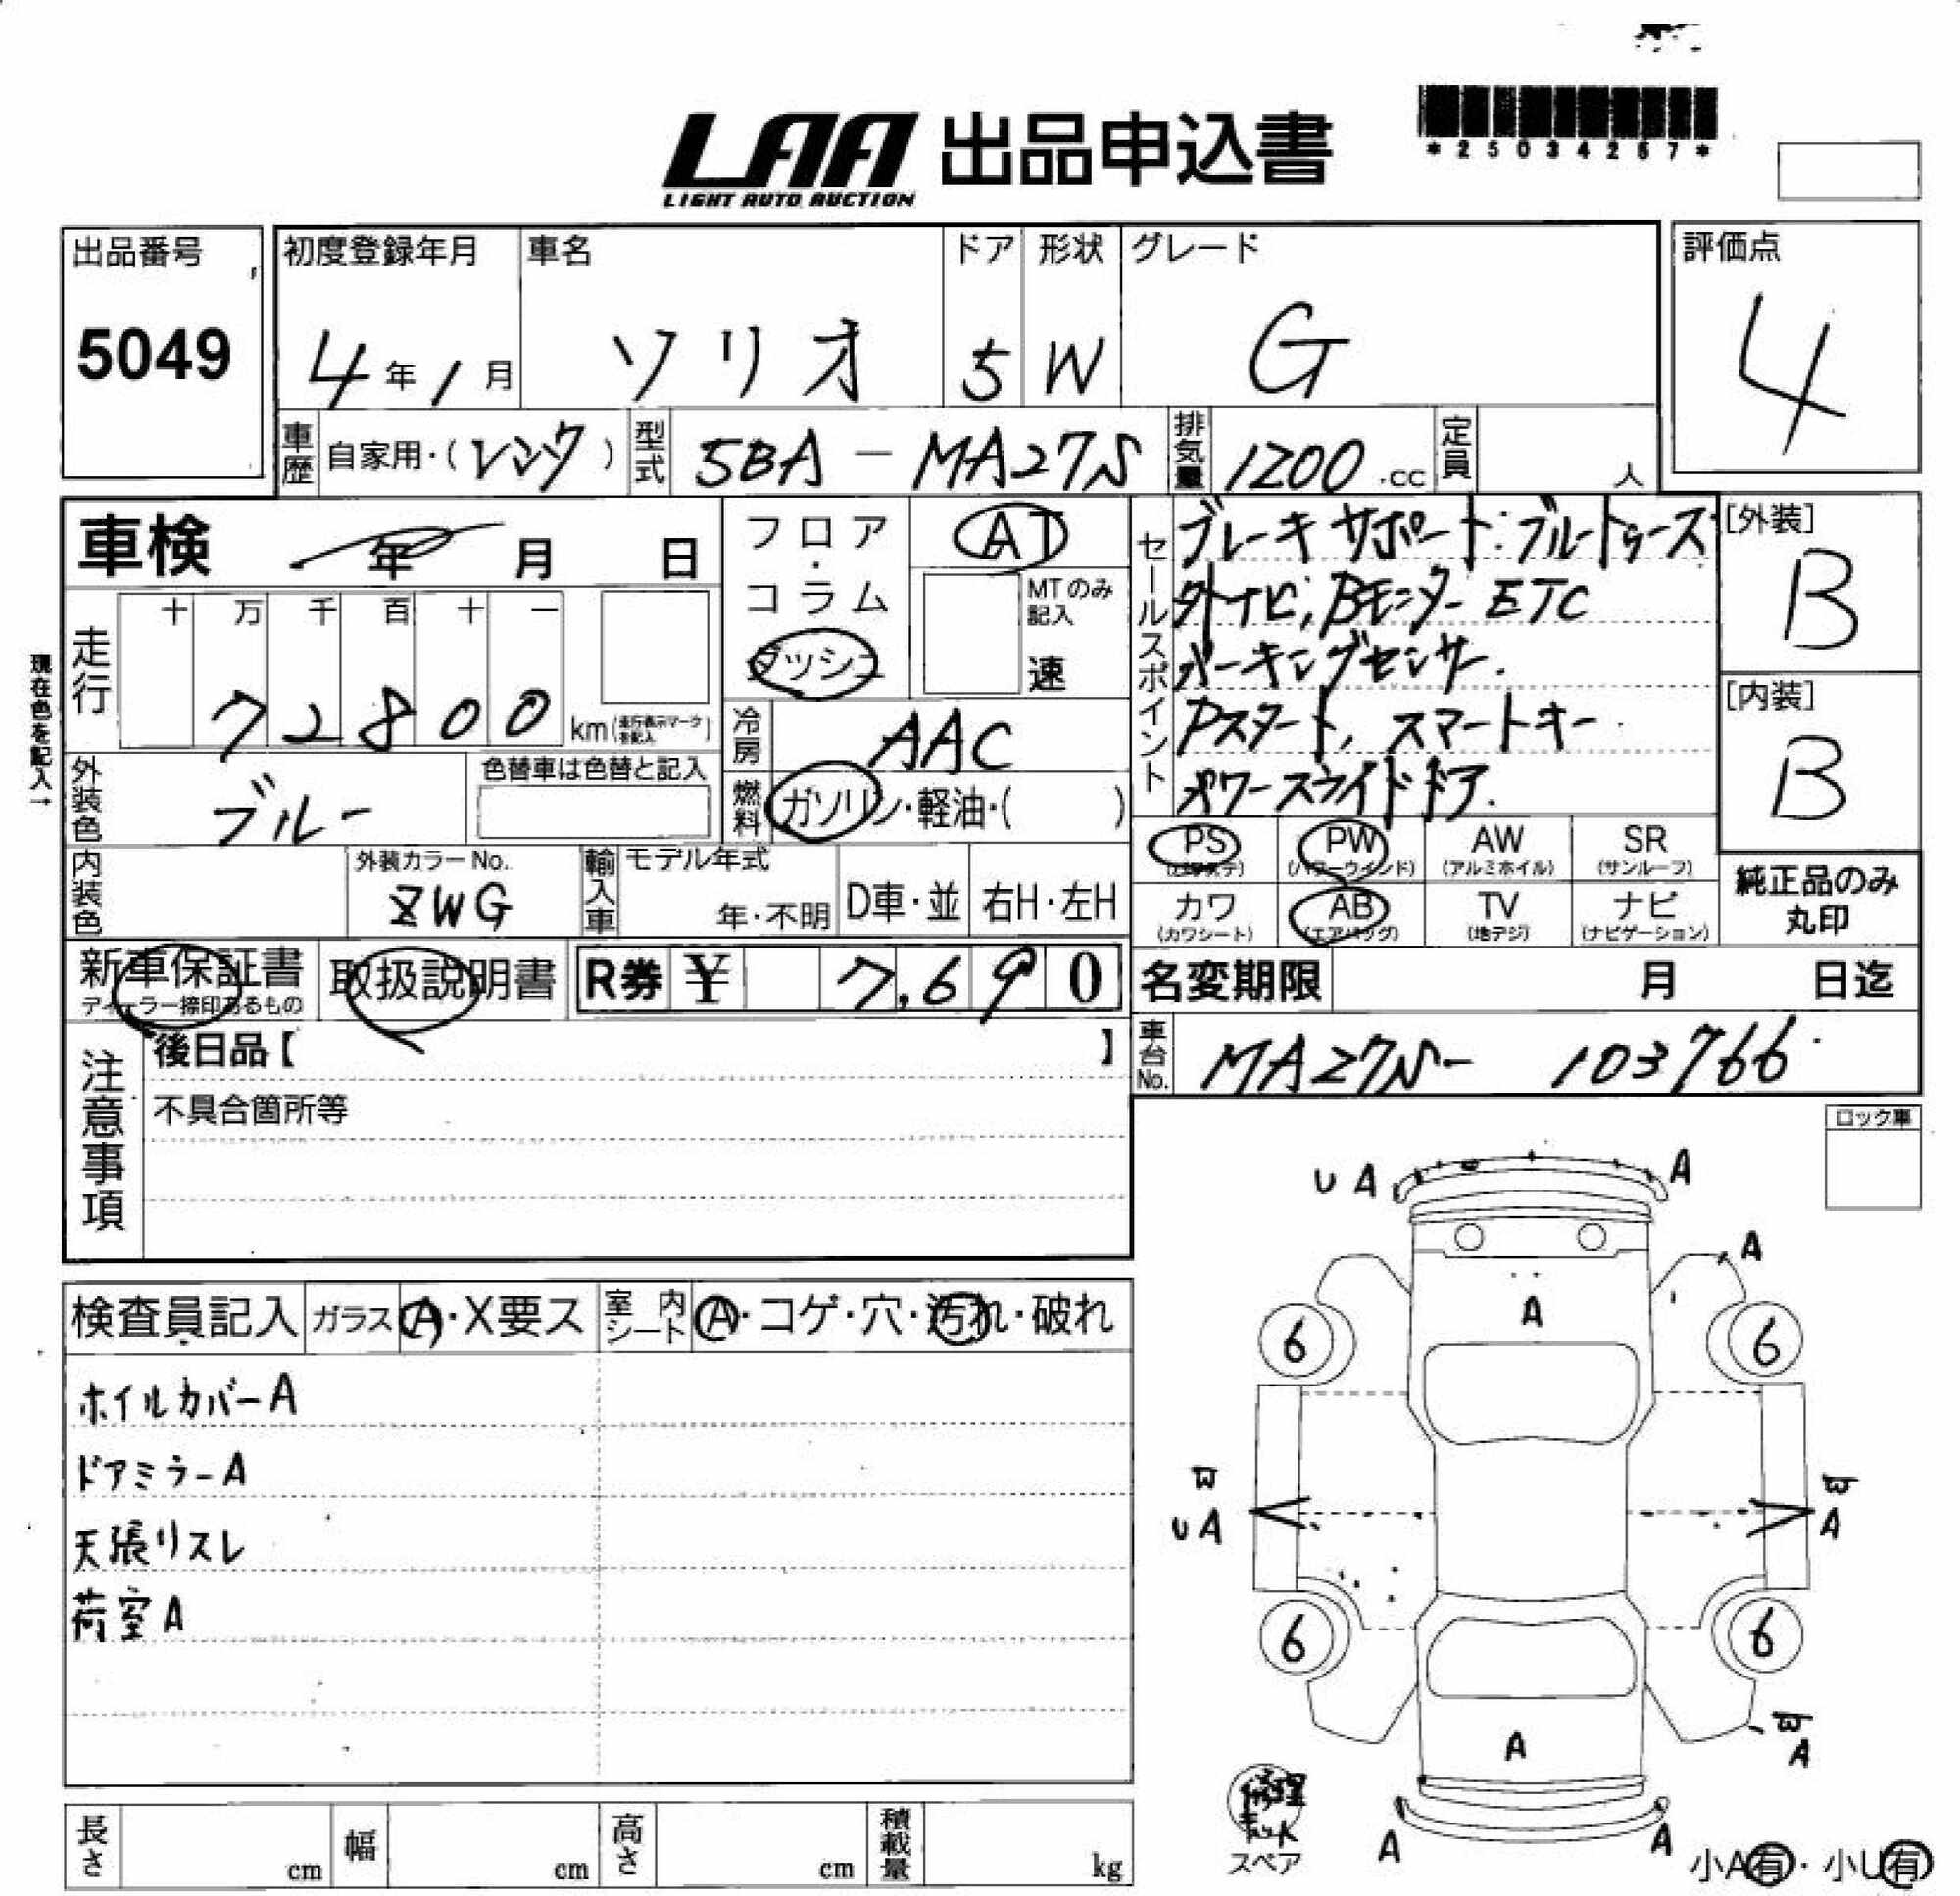 LAA 出品申込書
LIGHT AUTO AUCTION
*25034267*
出品番号
5049
初度登録年月
4年1月
車名
ソリオ
ドア
5
形状
W
グレード
G
評価点
4
車歴
自家用・(レンタ)
型式
5BA-MA27S
排気量
1200.cc
定員
人
車検
年 月 日
フロア・コラム
ダッシュ
AT
MTのみ記入
速
セールスポイント
ブレーキサポート:ブルートゥース
外ナビ, Bモニター ETC
パーキングセンサー.
Pスタート, スマートキー
パワースライドドア.
[外装]
B
[内装]
B
現在色を記入→
走行
十 万 千 百 十 一
72800
km(走行表示マークを記入)
冷房
AAC
燃料
ガソリン・軽油・( )
外装色
ブルー
色替車は色替と記入
内装色
外装カラーNo.
ZWG
輸入車
モデル年式
年・不明
D車・並
右H・左H
PS
(パワステ)
PW
(パワーウインド)
AW
(アルミホイル)
SR
(サンルーフ)
カワ
(カワシート)
AB
(エアバッグ)
TV
(地デジ)
ナビ
(ナビゲーション)
純正品のみ
丸印
新車保証書
ディーラー捺印あるもの
取扱説明書
R券 ¥ 7,690
名変期限
月 日迄
車台No.
MA27S- 103766
注意事項
後日品【 】
不具合箇所等
ロック車
検査員記入
ガラス A・X要ス
室内シート A・コゲ・穴・汚れ・破れ
ホイルカバーA
ドアミラーA
天張リスレ
荷室A
U A
A
A
A
6
6
U A
A
6
6
A
A
A
A
修理キット
スペア
小A有・小U有
長さ
cm
幅
cm
高さ
cm
積載量
kg